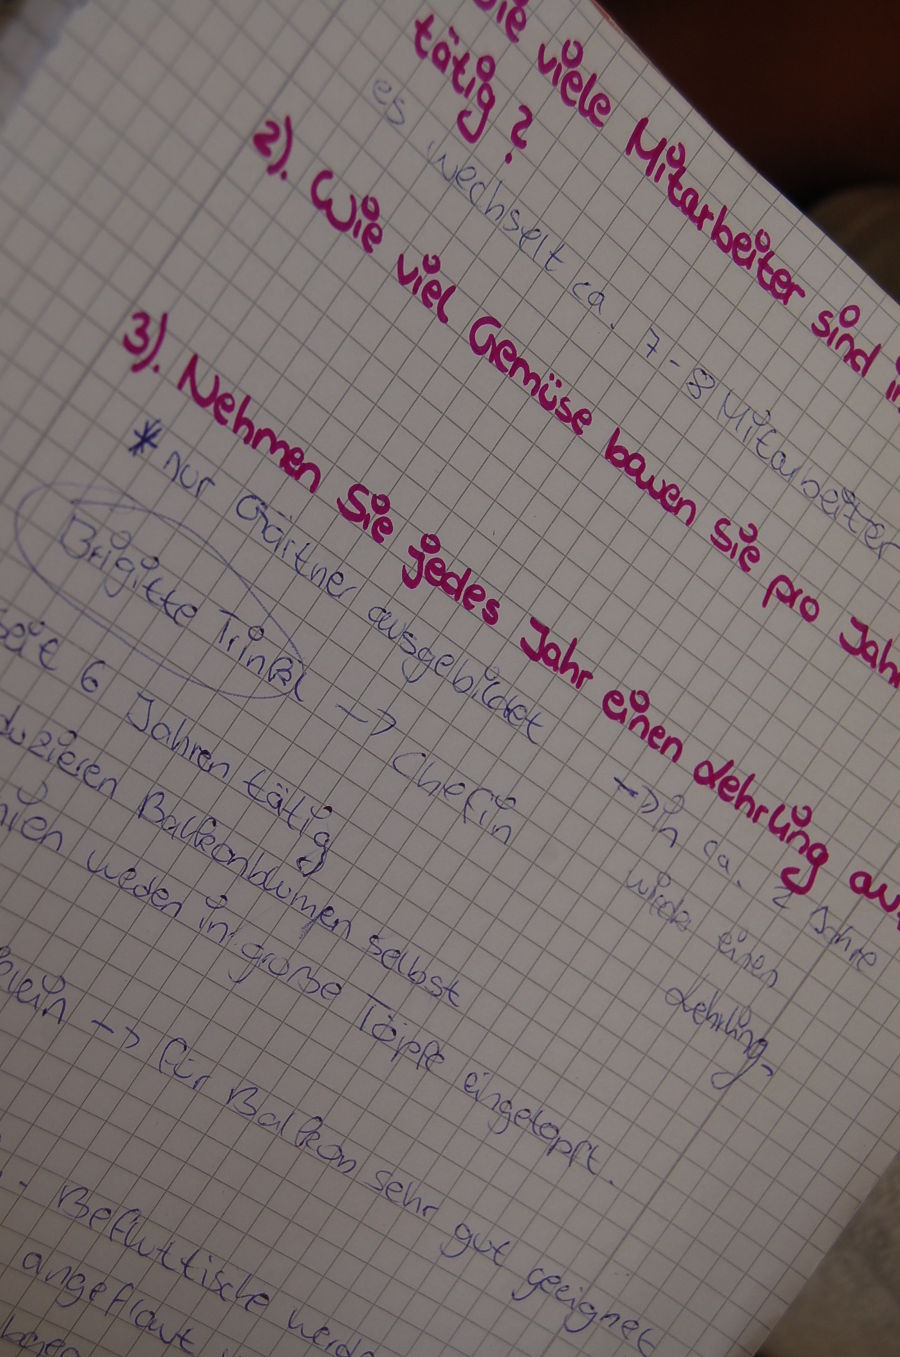 viele Mitarbeiter sind
tätig?
es wechselt ca. 7-8 Mitarbeiter
2). Wie viel Gemüse bauen sie pro Jahr
3). Nehmen Sie jedes Jahr einen Lehrling
* nur Gärtner ausgebildet
→ in ca. 2 Jahre
einen
Lehrling
Brigitte → Chefin
seit 6 Jahren tätig
Balkonblumen selbst
weden in große Töpfe eingetopft.
→ für Balkon sehr gut geeignet
- Befluttische